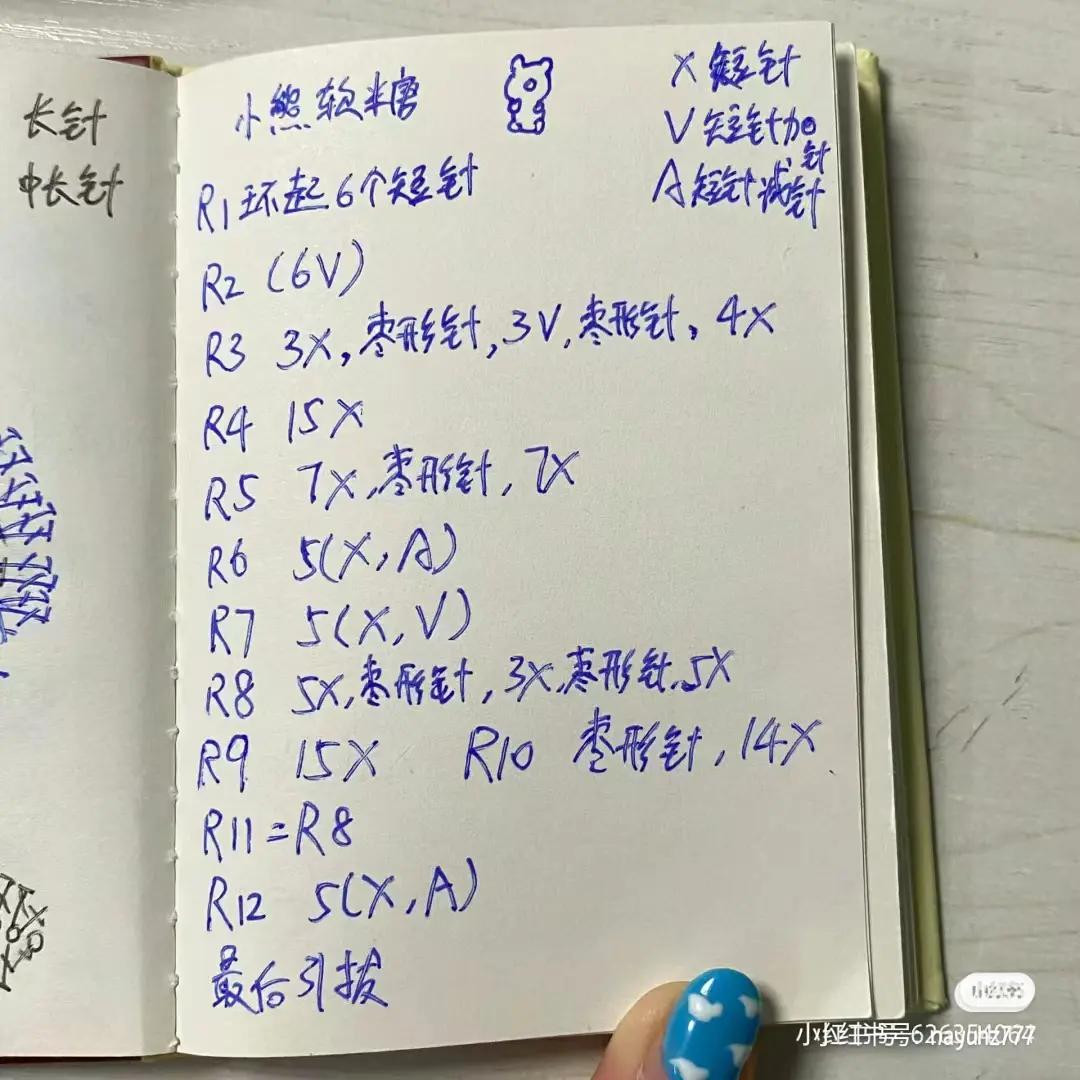 长针
中长针
小熊软糖
X 短针
V 短针加针
A 短针减针
R1 环起6个短针
R2 (6V)
R3 3X,枣形针,3V,枣形针,4X
R4 15X
R5 7X,枣形针,7X
R6 5(X,A)
R7 5(X,V)
R8 5X,枣形针,3X,枣形针,5X
R9 15X R10 枣形针,14X
R11=R8
R12 5(X,A)
最后引拔
小红书
小红书号